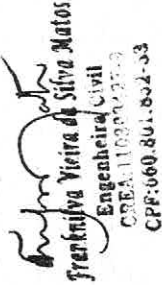 Franknilva Vieira da Silva Matos
Engenheira Civil
CREA:
CPF:060.801.802-33